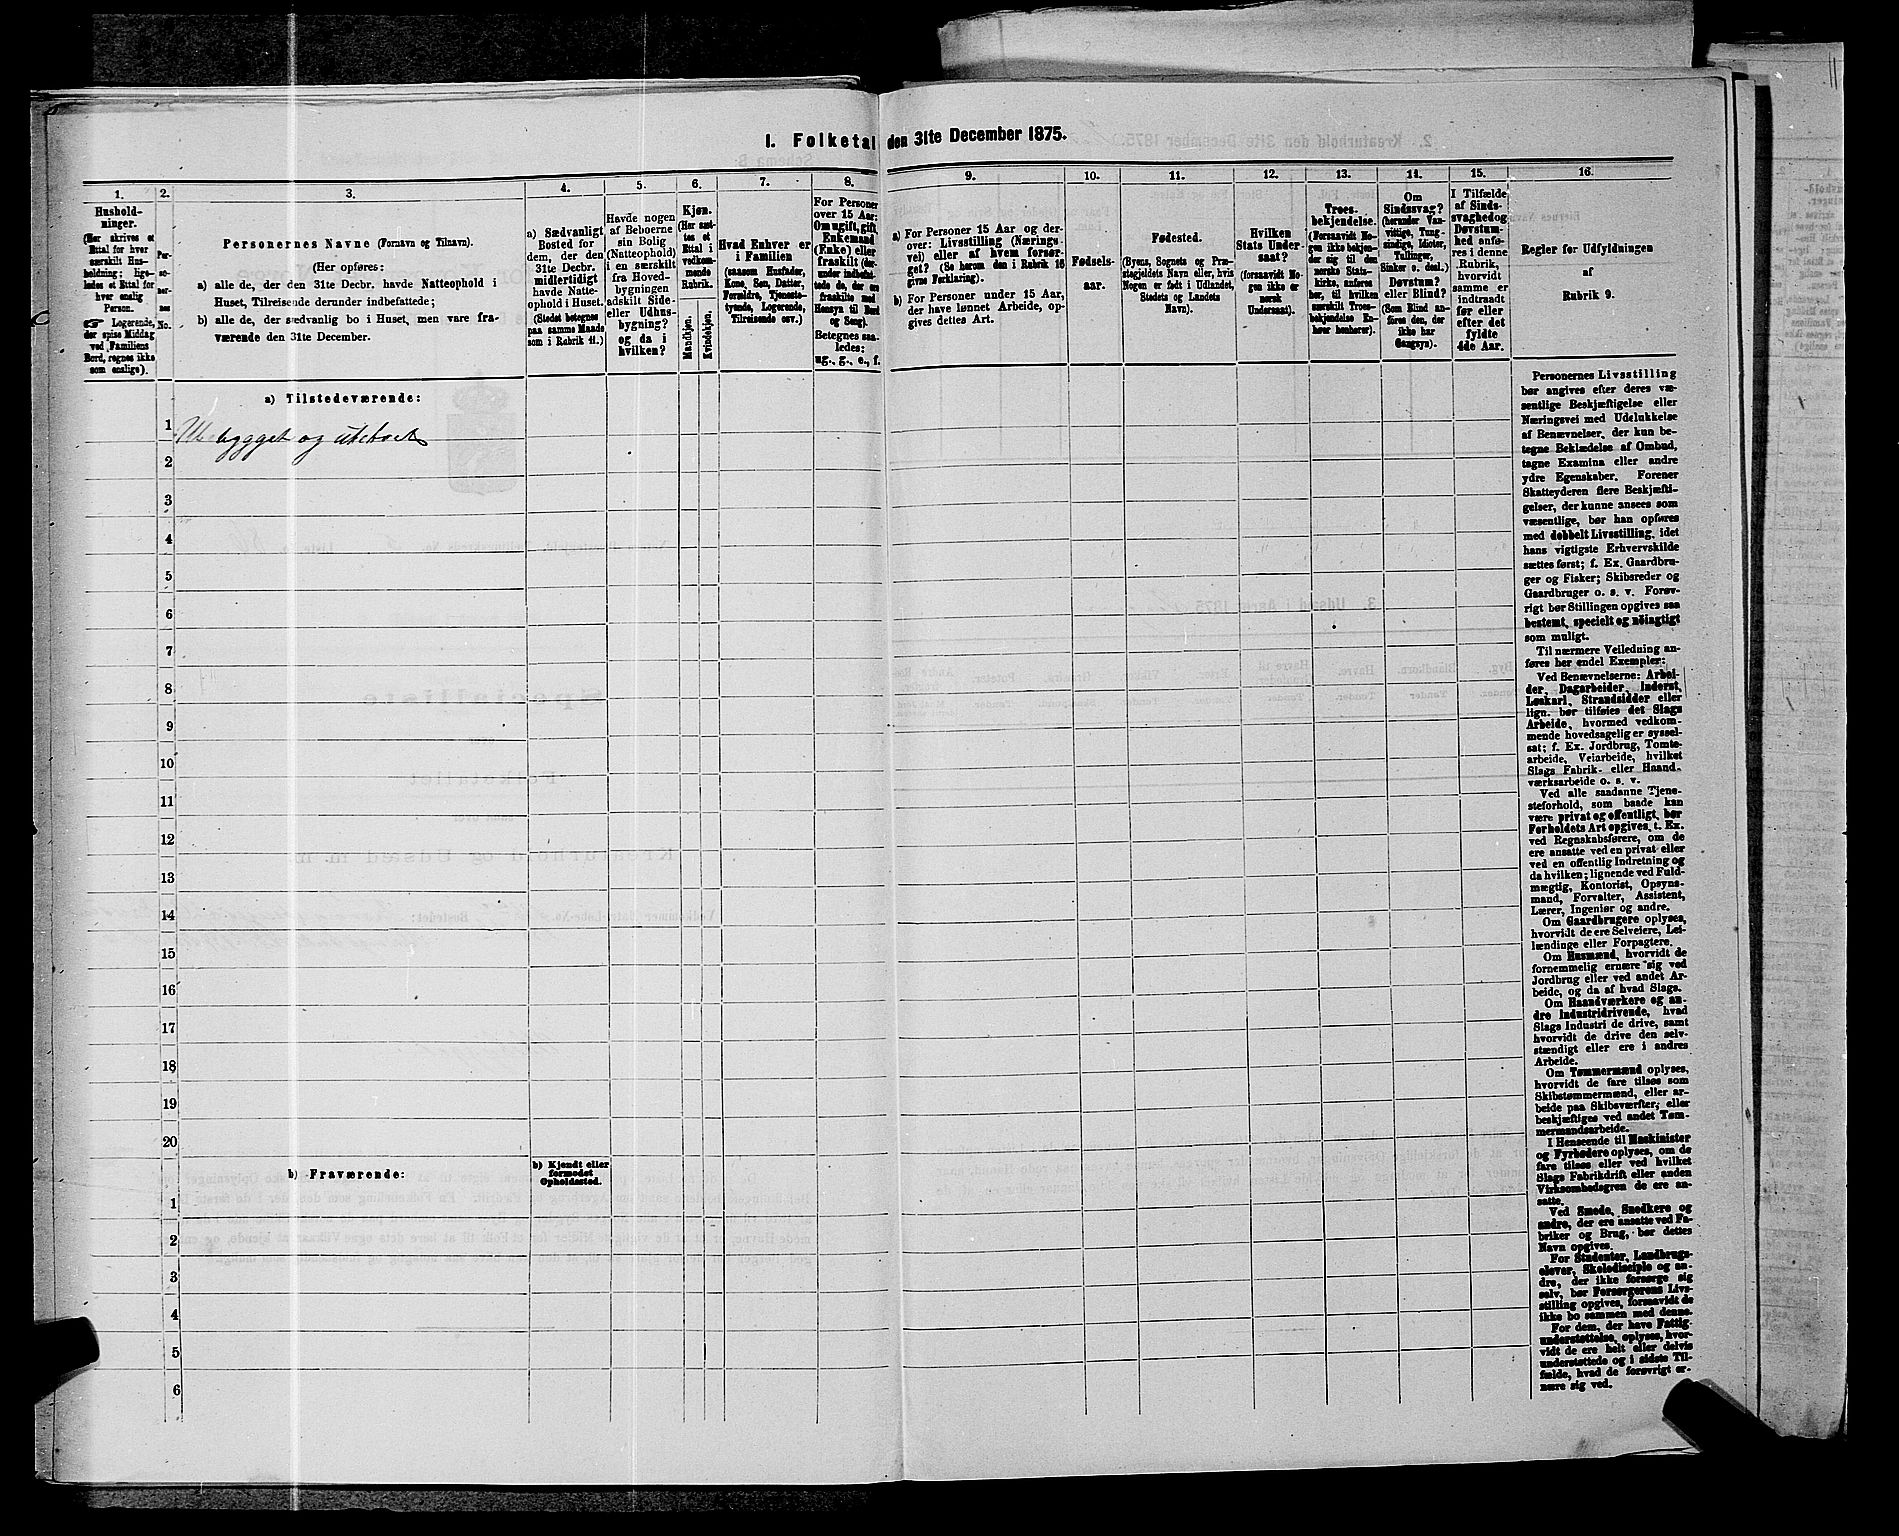 1. Folketal den 31te December 1875.
1.
Hushold-
ninger.
(Her skrives et
Ettal for hver
særskilt Hus-
holdning; lige-
ledes et Ettal for
hver enslig
Person.
Logerende,
der spise Middag
ved Familiens
Bord, regnes ikke
som enslige).
2.
Per-
so-
ner-
nes
No.
3.
Personernes Navne (Fornavn og Tilnavn).
(Her opføres:
a) alle de, der den 31te Decbr. havde Natteophold i
Huset, Tilreisende derunder indbefattede;
b) alle de, der sædvanlig bo i Huset, men vare fra-
værende den 31te December.
4.
a) Sædvanligt
Bosted for
dem, der den
31te Decbr.
midlertidigt
havde Natte-
ophold i Huset.
(Stedet betegnes
paa samme Maade
som i Rubrik 11.)
5.
Havde nogen
af Beboerne
sin Bolig
(Natteophold)
i en særskilt
fra Hoved-
bygningen
adskilt Side-
eller Udhus-
bygning?
og da i
hvilken?
6.
Kjøn.
(Her sæt-
tes et
Ettal i
vedkom-
mende
Rubrik.
Mandkjøn.
Kvindekjøn.
7.
Hvad Enhver er
i Familien
(saasom Husfader,
Kone, Søn, Datter,
Forældre, Tjeneste-
tyende, Logerende,
Tilreisende osv.)
8.
For Personer
over 15 Aar:
Om ugift, gift,
Enkemand
(Enke) eller
fraskilt (der-
under indbefat-
tede de, der ere
fraskilte med
Hensyn til Bord
og Seng).
Betegnes saa-
ledes:
ug., g., e., f.
9.
a) For Personer 15 Aar og der-
over: Livsstilling (Nærings-
vei) eller af hvem forsør-
get? (Se herom den i Rubrik 16
givne Forklaring).
b) For Personer under 15 Aar,
der have lønnet Arbeide, op-
gives dettes Art.
10.
Fødsels-
aar.
11.
Fødested.
(Byens, Sognets og Præ-
stegjeldets Navn eller, hvis
Nogen er født i Udlandet,
Stedets og Landets
Navn).
12.
Hvilken
Stats Under-
saat?
(forsaavidt No-
gen ikke er
norsk
Undersaat).
13.
Troes-
bekjendelse.
(Forsaavidt No-
gen ikke bekjen-
der sig til den
norske Stats-
kirke, anføres
her, til hvilken
særskilt Troes-
bekjendelse En-
hver henhører).
14.
Om
Sindssvag?
(herunder Van-
vittige, Tung-
sindige, Idioter,
Tullinger,
Sinker o. desl.)
Døvstum?
eller Blind?
(Som Blind an-
føres den, der
ikke har
Gangsyn).
15.
I Tilfælde
af Sinds-
svaghed og
Døvstum-
hed anfø-
res i denne
Rubrik,
hvorvidt
samme er
indtraadt
før eller
efter det
fyldte
4de Aar.
16.
Regler for Udfyldningen
af
Rubrik 9.
a) Tilstedeværende:
1
Ubebygget og ubeboet
2
3
4
5
6
7
8
9
10
11
12
13
14
15
16
17
18
19
20
b) Fraværende:
b) Kjendt eller
formodet
Opholdssted.
1
2
3
4
5
6
Personernes Livsstilling
bør angives efter deres væ-
sentlige Beskjæftigelse eller
Næringsvei med Udelukkelse
af Benævnelser, der kun be-
tegne Beklædelse af Ombud,
tagne Examina eller andre
ydre Egenskaber. Forener
Skatteyderen flere Beskjæfti-
gelser, der kunne ansees som
væsentlige, bør han opføres
med dobbelt Livsstilling, idet
hans vigtigste Erhvervskilde
sættes først; f. Ex. Gaardbru-
ger og Fisker; Skibsreder og
Gaardbruger o. s. v. Forøv-
rigt bør Stillingen opgives saa
bestemt, specielt og nöiagtigt
som muligt.
Til nærmere Veiledning an-
føres her endel Exempler:
Ved Benævnelserne: Arbei-
der, Dagarbeider, Inderst,
Løskarl, Strandsidder eller
lign. bør tilføies det Slags
Arbeide, hvormed vedkom-
mende hovedsagelig er syssel-
sat; f. Ex. Jordbrug, Tomte-
arbeide, Veiarbeide, hvilket
Slags Fabrik- eller Haand-
værksarbeide o. s. v.
Ved alle saadanne Tjene-
steforhold, som baade kan
være privat og offentligt, bør
Forholdets Art opgives, t. Ex.
ved Regnskabsførere, om de
ere ansatte ved en privat eller
ved en offentlig Indretning og
da hvilken; lignende ved Fuld-
mægtig, Kontorist, Opsyns-
mand, Forvalter, Assistent,
Lærer, Ingeniør og andre.
Om Gaardbrugere oplyses,
hvorvidt de ere Selveiere, Lei-
lændinge eller Forpagtere.
Om Husmænd, hvorvidt de
fornemmelig ernære sig ved
Jordbrug eller ved andet Ar-
beide, og da af hvad Slags.
Om Haandværkere og an-
dre Industridrivende, hvad
Slags Industri de drive, samt
hvorvidt de drive den selv-
stændigt eller ere i andres
Arbeide.
Om Tømmermænd oplyses,
hvorvidt de fare tilsøs som
Skibstømmermænd, eller ar-
beide paa Skibsværfter, eller
beskjæftiges ved andet Tøm-
mermandsarbeide.
I Henseende til Maskinister
og Fyrbødere oplyses, om de
fare tilsøs eller ved hvilket
Slags Fabrikdrift eller anden
Virksomhedsgren de ere an-
satte.
Ved Smede, Snedkere og
andre, der ere ansatte ved Fa-
briker og Brug, bør dettes
Navn opgives.
For Studenter, Landbrugs-
elever, Skoledisciple og an-
dre, der ikke forsørge sig
selv, bør Forsørgerens Livs-
stilling opgives, forsaavidt de
ikke bo sammen med denne.
For dem, der have Fattig-
understøttelse, oplyses, hvor-
vidt de ere helt eller delvis
understøttede og i sidste Til-
fælde, hvad de forøvrigt er-
nære sig ved.